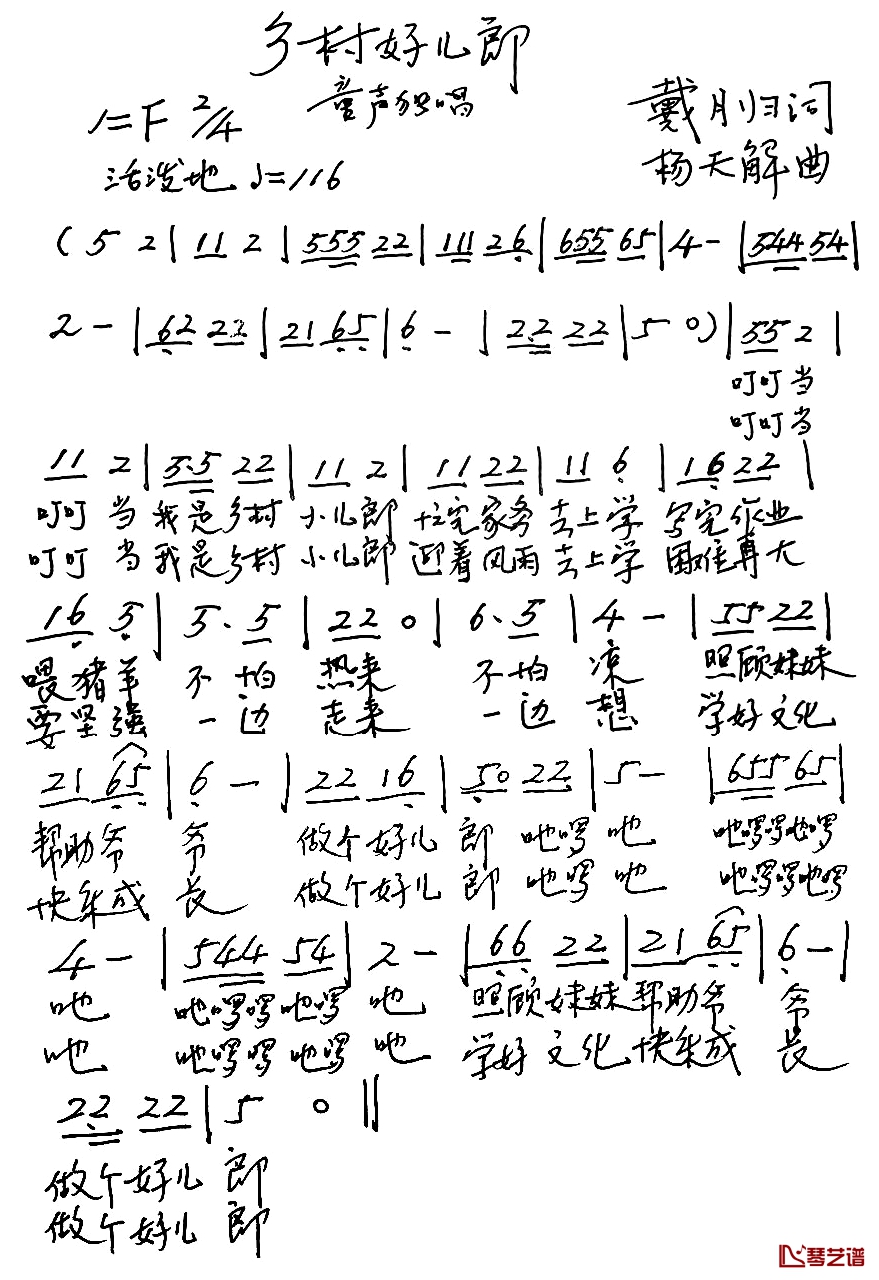 乡村好儿郎
童声独唱
1=F 2/4
戴月归词
活泼地 ♩=116
杨天解曲
( 5 2 | 11 2 | 555 22 | 111 26 | 655 65 | 4 - | 544 54 |
2 - | 62 22 | 21 65 | 6 - | 2.2 22 | 5 0 ) | 55 2 |
叮叮当
叮叮当
11 2 | 5.5 22 | 11 2 | 11 22 | 11 6 | 16 22 |
叮叮 当 我是乡村 小儿郎 忙完家务 去上学 写完作业
叮叮 当 我是乡村 小儿郎 迎着风雨 去上学 困难再大
16 5 | 5. 5 | 22 0 | 6. 5 | 4 - | 55 22 |
喂猪羊 不怕 热来 不怕 凉 照顾妹妹
要坚强 一边 走来 一边 想 学好文化
21 65 | 6 - | 22 16 | 50 22 | 5 - | 655 65 |
帮助爷 爷 做个好儿 郎 吔啰 吔 吔啰啰吔啰
快乐成 长 做个好儿 郎 吔啰 吔 吔啰啰吔啰
4 - | 544 54 | 2 - | 66 22 | 21 65 | 6 - |
吔 吔啰啰吔啰 吔 照顾妹妹 帮助爷 爷
吔 吔啰啰吔啰 吔 学好文化 快乐成 长
22 22 | 5 0 ||
做个好儿 郎
做个好儿 郎
琴艺谱